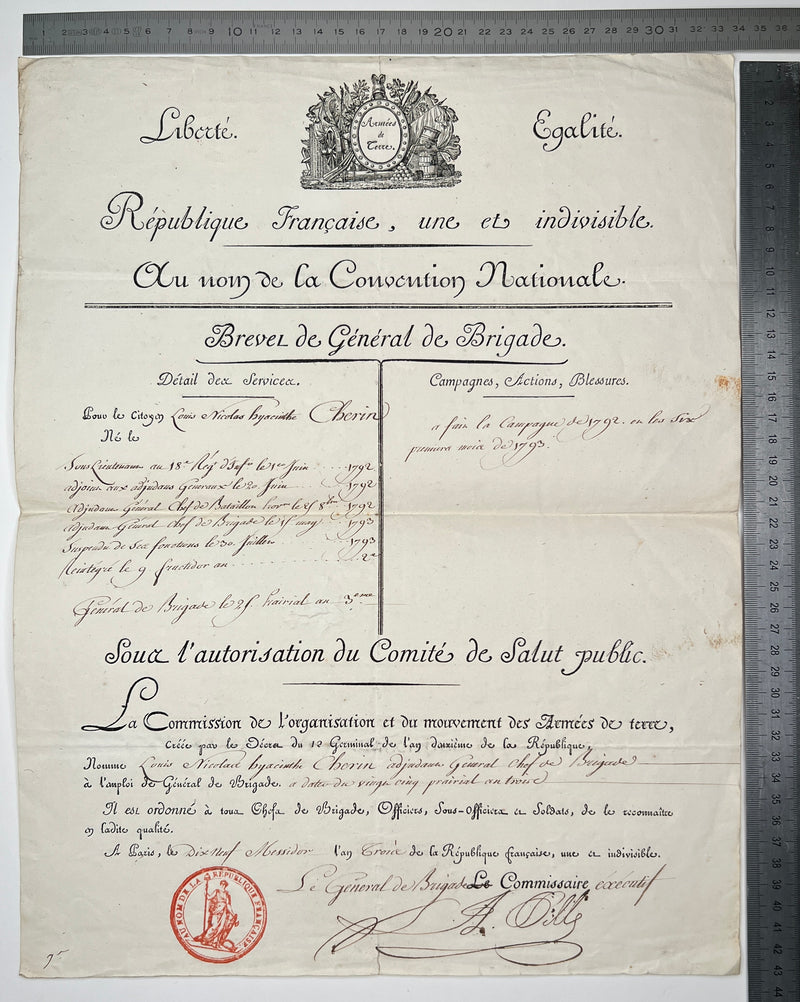 Liberté.
Armées
de
Terre.
Egalité.
République Française, une et indivisible.
Au nom de la Convention Nationale.
Brevet de Général de Brigade.
Détail des Services.
Pour le Citoyen Louis Nicolas hyacinthe Cherin
Né le
Sous Lieutenant au 18e Régt d'Infie le 1er Juin 1792
adjoint aux adjudans Généraux le 20 Juin 1792
adjudant Général Chef de Bataillon le 25 8bre 1792
adjudant Général Chef de Brigade le 15 may 1793
Suspendu de Ses fonctions le 30 Juillet 1793
Réintégré le 9 fructidor an 2e
Général de Brigade le 25 Prairial an 3eme
Campagnes, Actions, Blessures.
a fait la Campagne de 1792 et les Six
premiers mois de 1793.
Sous l'autorisation du Comité de Salut public.
La Commission de l'organisation et du mouvement des Armées de terre,
Créée par le Décret du 12 Germinal de l'an deuxième de la République,
Nomme Louis Nicolas hyacinthe Cherin adjudant Général Chef de Brigade
à l'emploi de Général de Brigade. a dater du vingt cinq prairial an trois
Il est ordonné à tous Chefs de Brigade, Officiers, Sous-Officiers et Soldats, de le reconnaître
en ladite qualité.
A Paris, le Dix neuf Messidor l'an Trois de la République française, une et indivisible.
Le Général de Brigade Le Commissaire exécutif
A. Pille
AU NOM DE LA REPUBLIQUE FRANÇAISE